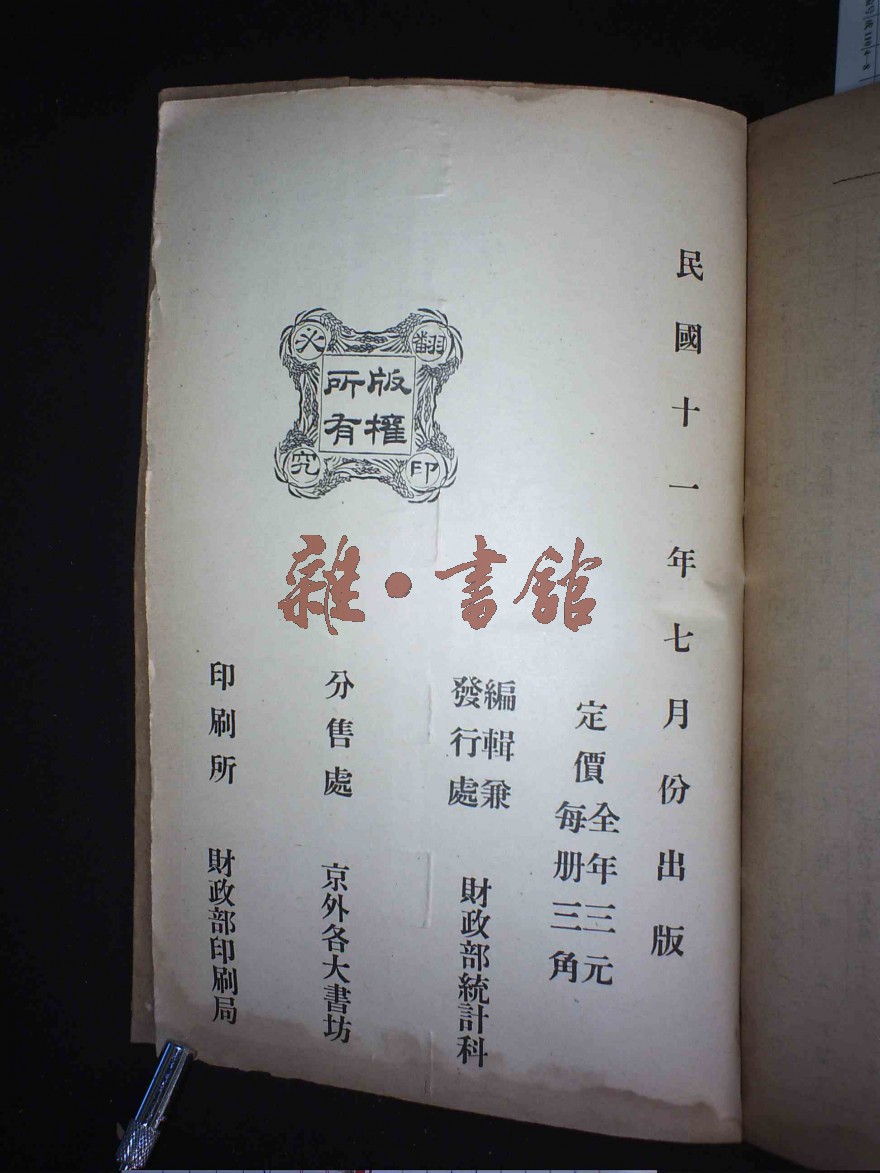 民國十一年七月份出版
定價
全年三元
每册三角
編輯兼
發行處
財政部統計科
分售處
京外各大書坊
印刷所
財政部印刷局
版權
所有
翻印
必究
雜·書館